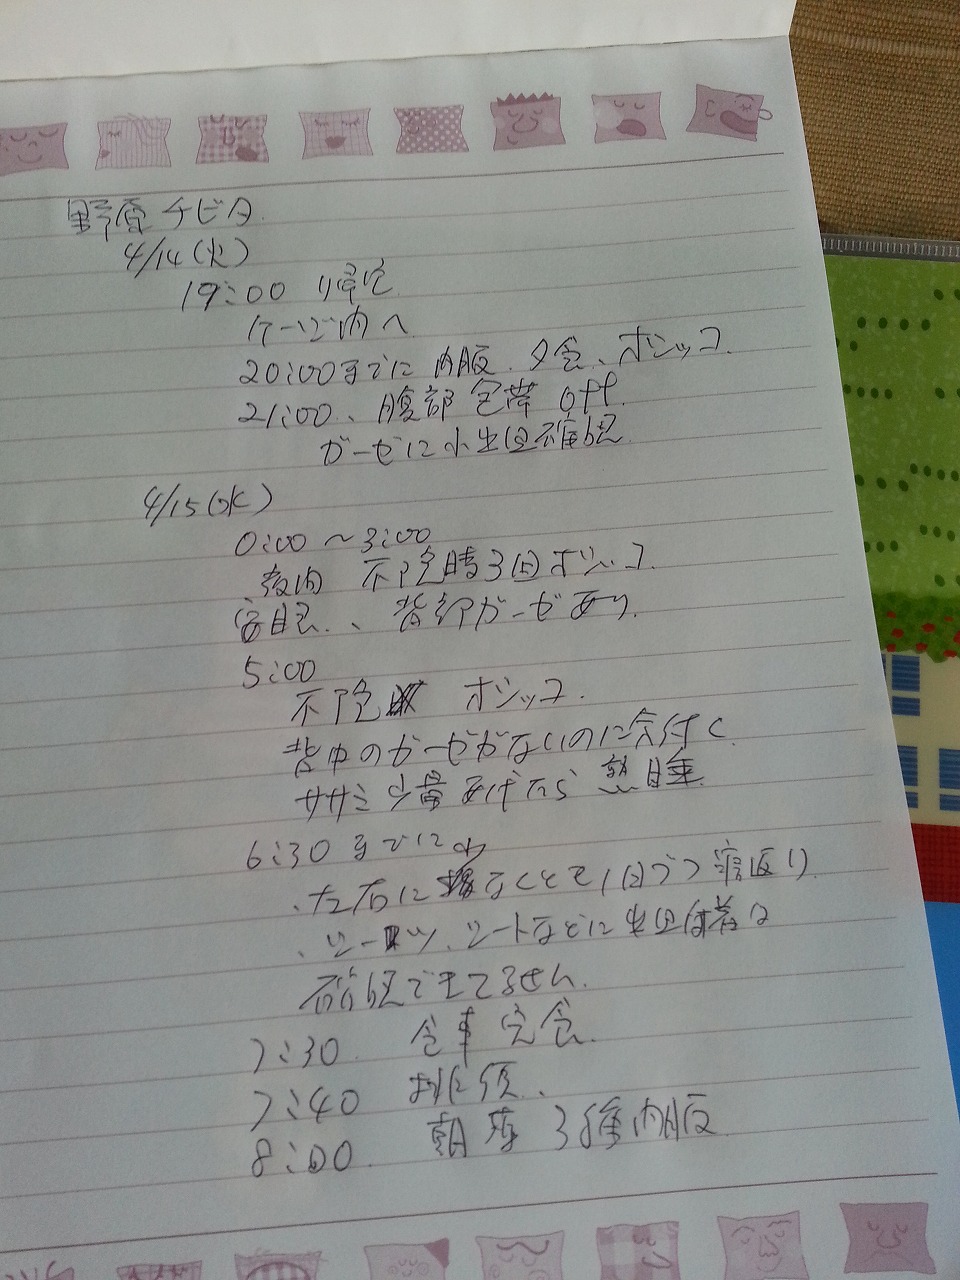 野原チビタ
4/14(火)
19:00 帰宅
ケージ内へ
20:00までに内服、夕食、オシッコ.
21:00、腹部包帯off.
ガーゼに小出血確認
4/15(水)
0:00〜3:00
夜間 不穏時3回オシッコ.
客眼、、背部ガーゼあり.
5:00
不穏 オシッコ.
背中のガーゼがないのに気付く
ササミ少量あげたら熟睡
6:30までに
・左右に なくとも1回づつ寝返り
・シーツ、シートなどに出血付着は
確認できてません.
7:30 食事完食.
7:40 排便、
8:00 朝薬 3種内服